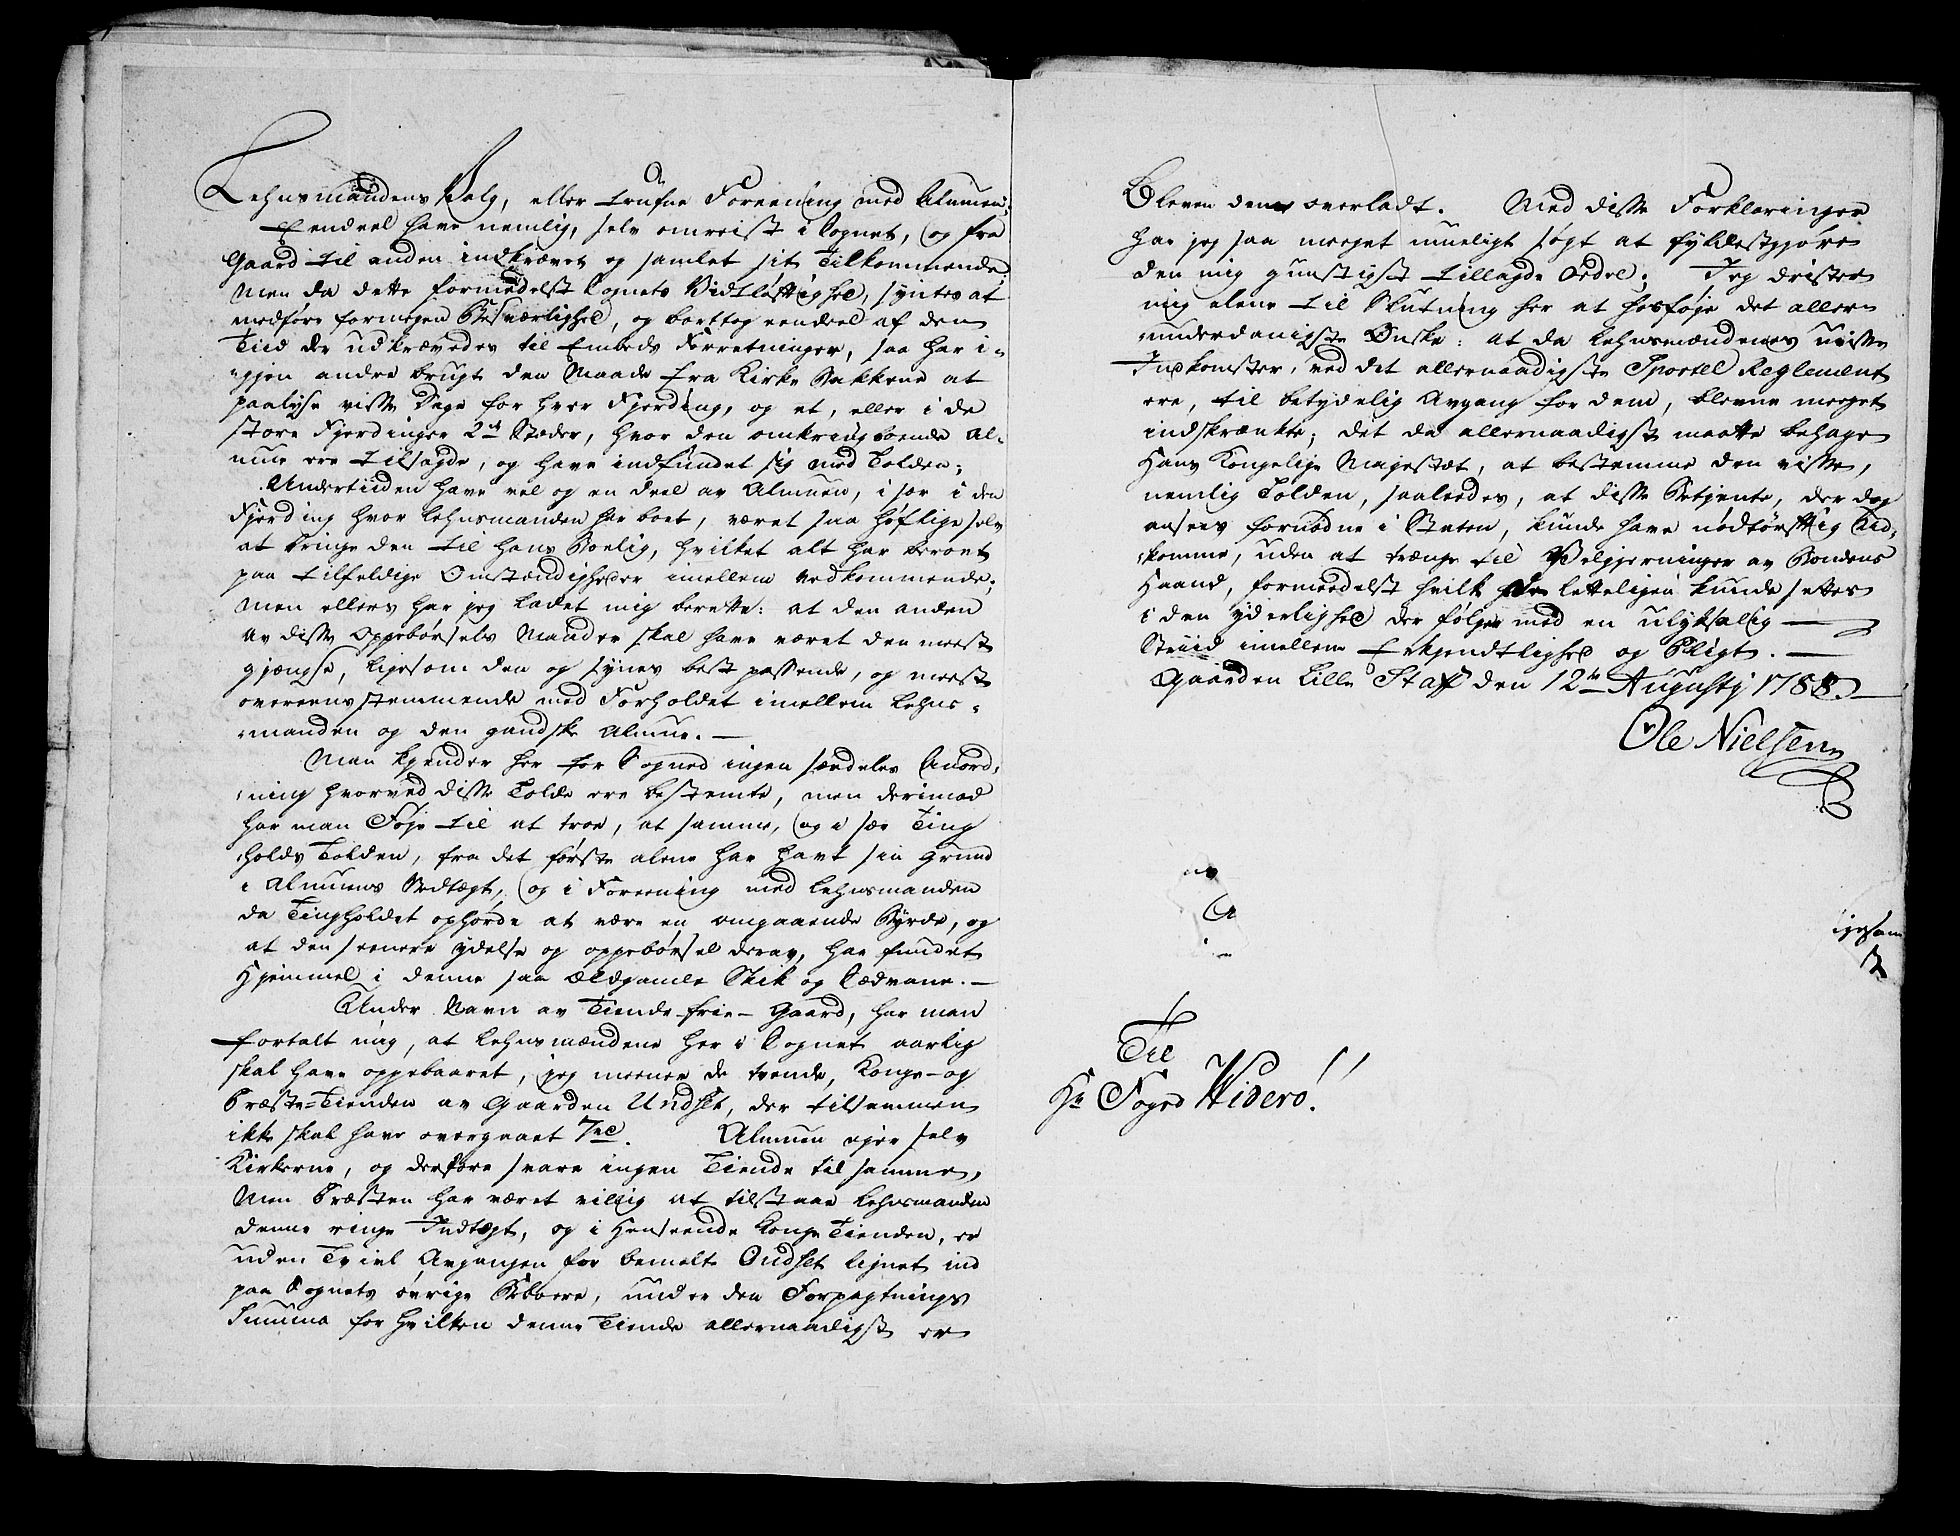 Lehnsmandens Valg, eller trufne Foreening med Almuen;
Eendeel have nemlig, selv omreist i Sognet, og fra
Gaard til anden indkrævet og samlet sit Tilkommende,
Men da dette formedelst Sognets Vidtløftighed, syntes at
medføre formegen Besværlighed, og borttog eendeel af den
Tiid der udkrævedes til Embeds Forretninger, saa har i-
gjen andre brugt den Maade fra Kirke Bakkene at
paalyse visse Dage for hver Fjerding, og et, eller i de
store Fjerdinger 2de Stæder, hvor den omkring boende Al-
mue ere tilsagde, og have indfundet sig med Tolden;
Undertiiden have vel og en Deel av Almuen, i sær i den
Fjerding hvor Lehnsmanden har boet, været saa høflige selv
at bringe den til hans Boelig, hvilket alt har beroet
paa tilfeldige Omstændigheder imellem vedkommende;
Men ellers har jeg ladet mig berette: at den anden
av disse Oppebørsels Maader skal have været den meest
gjængse, ligesom den og synes best passende, og meest
overeensstemmende med Forholdet imellem Lehns-
manden og den gandske Almue. —
Man kjender her for Sogned ingen særdeles Anord-
ning hvorved disse Tolde ere bestemte, men derimod
har man Føje til at troe, at samme, og i sær Ting
holds Tolden, fra det første alene har havt sin Grund
i Almuens Vedtægt, og i Foreening med Lehnsmanden
da Tingholdet ophørde at være en omgaaende Byrde, og
at den seenere Ydelse og oppebørsel derav, har fundet
Hjemmel i denne saa ældgamle Skik og Sædvane. —
Under Navn av Tiende-frie-Gaard, har man
fortalt mig, at Lehnsmændene her i Sognet aarlig
skal have oppebaaret, jeg meener de tvende, Konge- og
Præste-Tienden av Gaarden Undset, der tilsammen
ikke skal have overgaaet 7rd. Almuen ejer selv
Kirkerne, og derfore svare ingen Tiende til samme,
Men Præsten har været villig at tilstaae Lehnsmanden
denne ringe Indtægt, og i Henseende Konge Tienden, er
uden Tvivl Avgangen for bemelte Undset lignet ind
paa Sognets øvrige Beboere, under den Forpagtnings
Summa for hvilken denne Tiende allernaadigst er
Bleven dem overladt. Med disse Forklaringer
har jeg saa meeget mueligt søgt at fyldestgjøre
den mig gunstigst tillagde Ordre; Jeg drister
mig alene til Slutning her at hosføje det aller-
underdanigste Ønske: at da Lehnsmændenes visse
Indkomster, ved det allernaadigste Sportel Reglement
ere, til betydelig Avgang for dem, blevne meeget
indskrænkte; det da allernaadigst maatte behage
Hans Kongelige Majestæt, at bestemme den visse,
nemlig Tolden, saaledes, at disse Betjente, der dog
ansees fornødne i Staten, kunde have nødtørftig Ud-
komme, uden at trænge til Velgjerninger av Bondens
Haand, formedelst hvilke de letteligen kunde settes
i den Yderlighed der følger med en ulyksalig
Striid imellem Erkjendtlighed og Pligt. —
Gaarden Lille Staff den 12te Augustj 1788. —
Ole Nielsen
igesom
Til
Hr Foged Widerø!